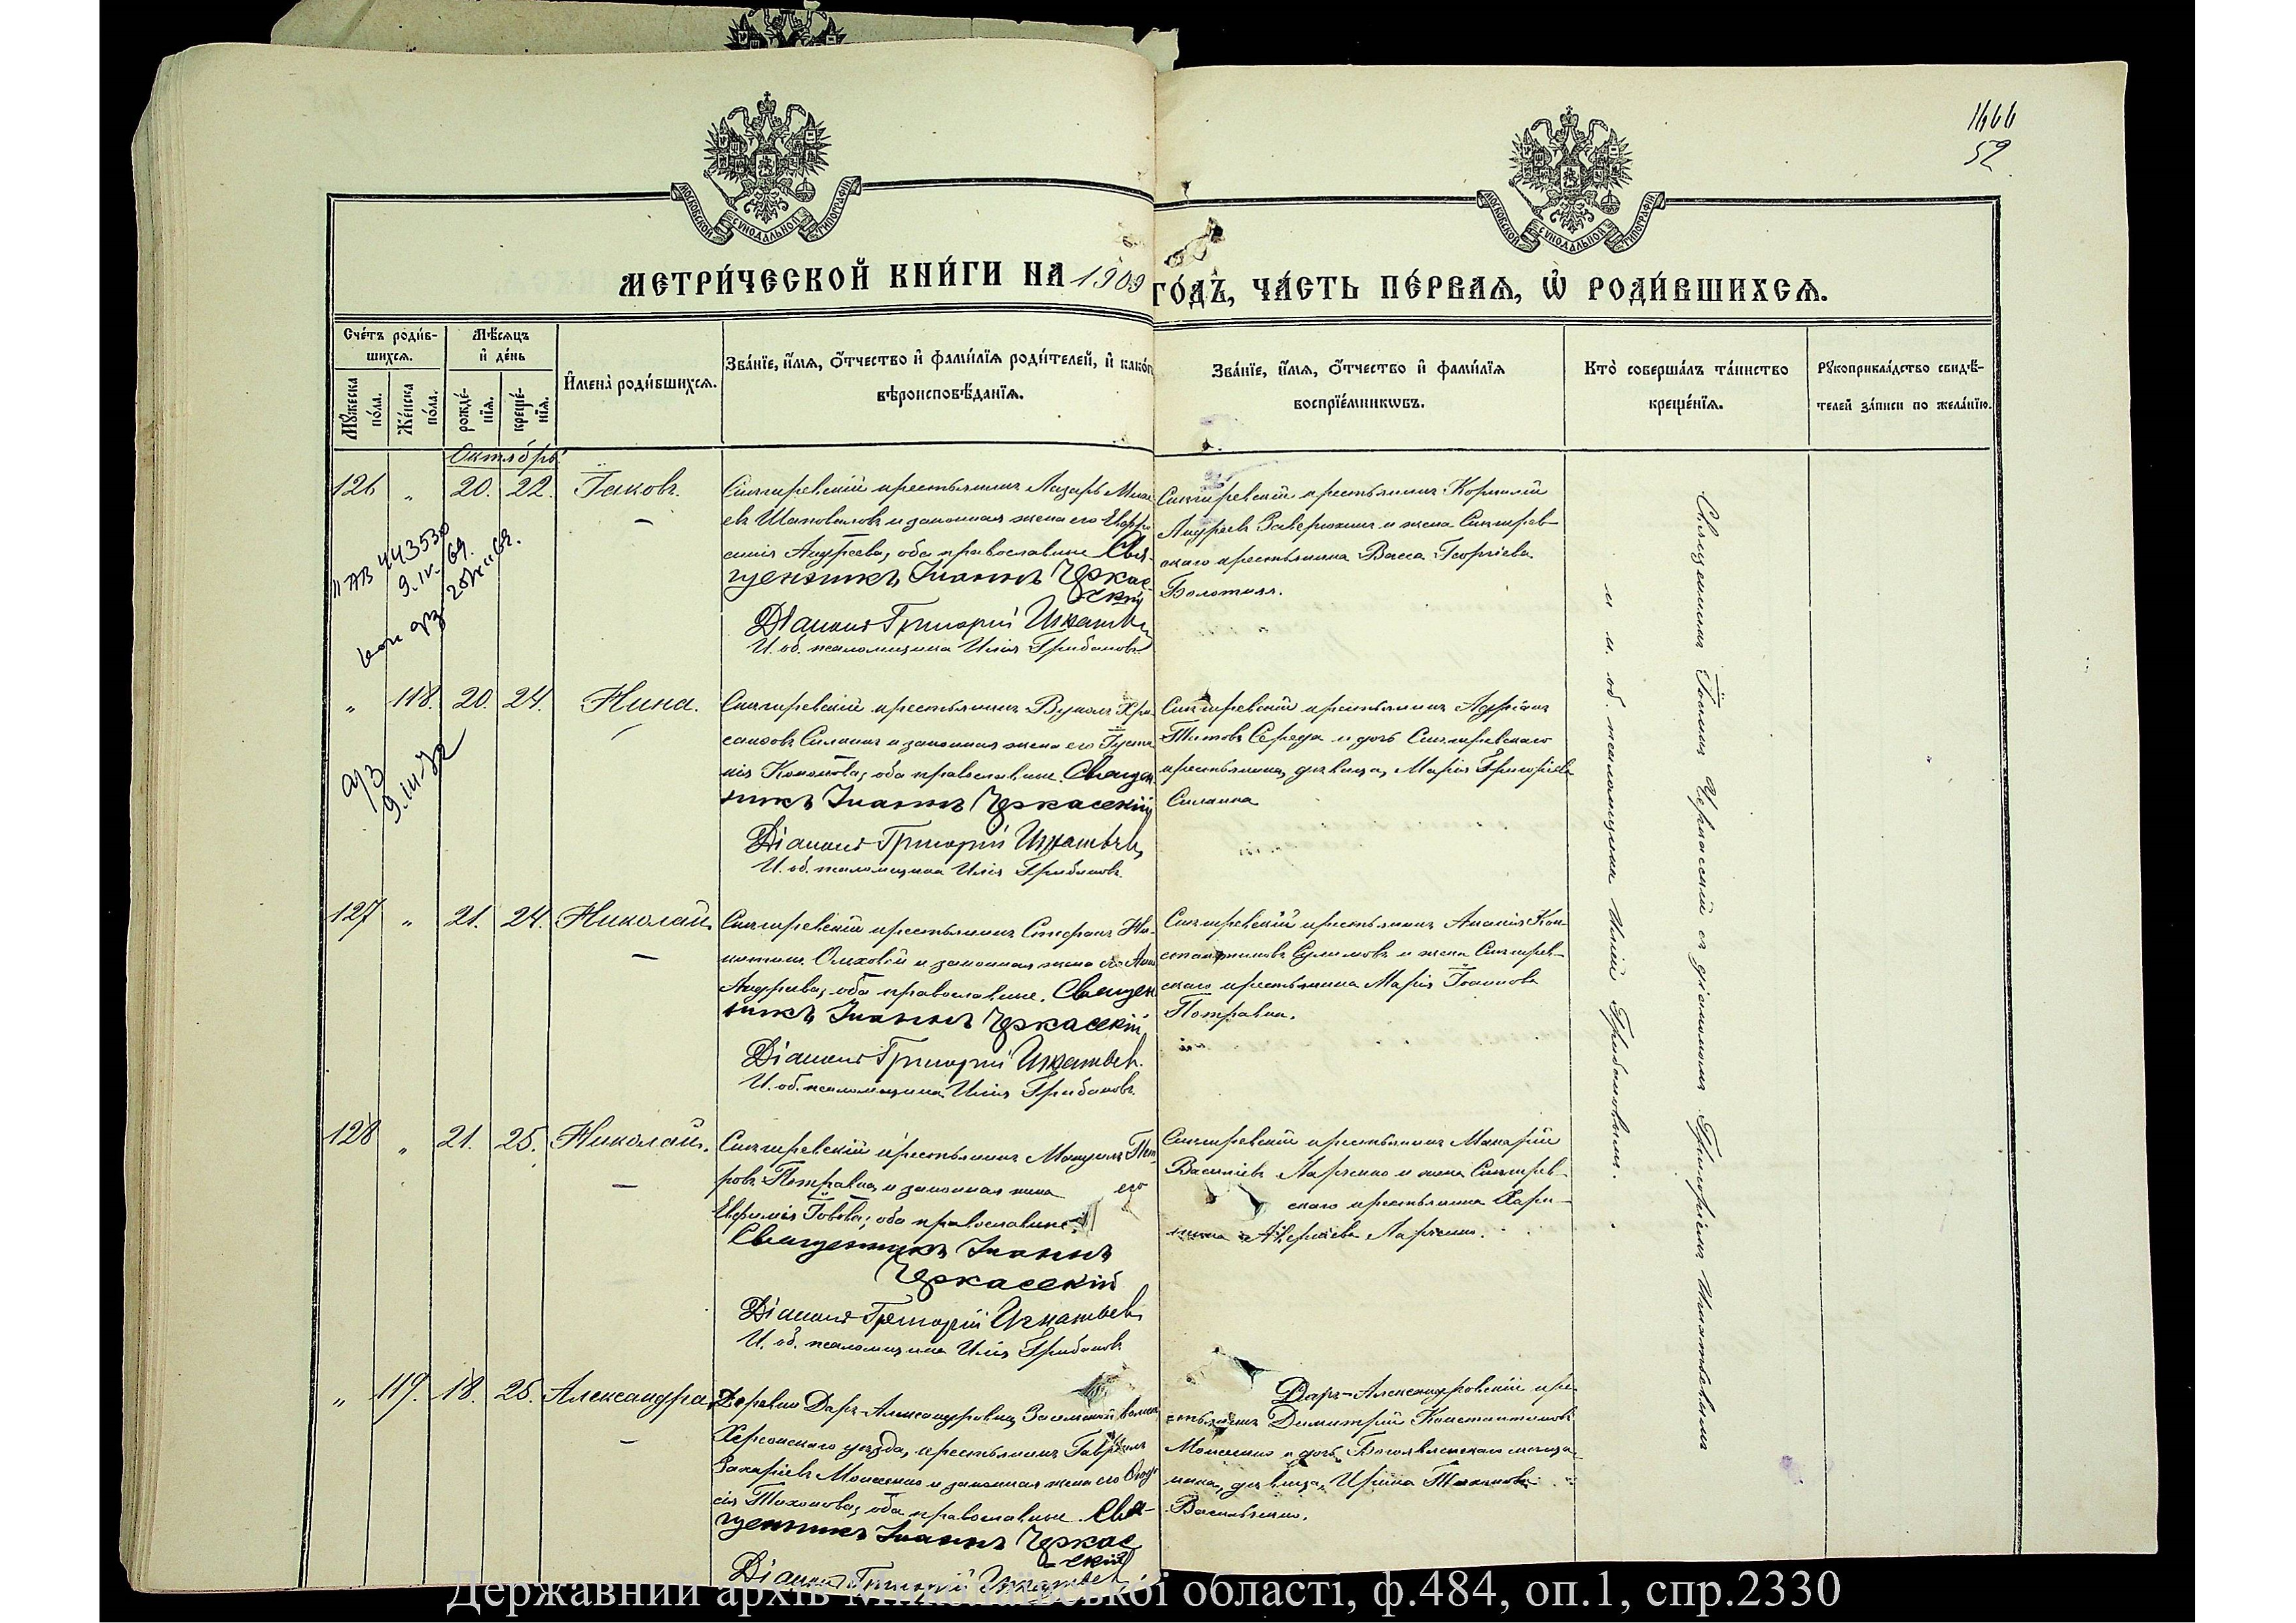 1466
52
МОСКОВСКОЙ СѴНОДАЛЬНОЙ ТИПОГРАФІИ
МОСКОВСКОЙ СѴНОДАЛЬНОЙ ТИПОГРАФІИ
МЕТРИ́ЧЕСКОЙ КНИ́ГИ НА 1909 ГО́ДЪ, ЧА́СТЬ ПЕ́РВАЯ, Ѡ҆ РОДИ́ВШИХСЯ.
Сче́тъ роди́в-
шихся.
Мѣ́сяцъ
и҆ де́нь
Мꙋ́жеска по́ла.
Же́нска по́ла.
рожде́-нїя.
креще́-нїя.
И҆мена̀ роди́вшихся.
Зва́нїе, и҆́мя, ѻ҆́тчество и҆ фами́лїя роди́телей, и҆ како́гѡ
вѣроисповѣ́данїя.
Зва́нїе, и҆́мя, ѻ҆́тчество и҆ фами́лїя
воспрїе́мникѡвъ.
Кто̀ соверша́лъ та́инство
креще́нїя.
Рꙋкоприкла́дство свидѣ́-
телей за́писи по жела́нїю.
Октябрь
126 „ 20. 22. Іаковъ.
Снигиревскій крестьянинъ Лазарь Миха-
евъ Шаповаловъ и законная жена его Евфро-
синія Андреева, оба православные. Свя-
щенникъ Іоаннъ Черкас-
скій
Діаконъ Григорій Игнатьев
И. об. псаломщика Илія Грибановъ
Снигиревскій крестьянинъ Корнилій
Андреевъ Заверюхинъ и жена Снигирев-
скаго крестьянина Васса Георгіева
Болотная.
II АВ 443530
9.IV.69.
„ 118. 20. 24. Нина.
Снигиревскій крестьянинъ Вуколъ Хри-
санѳовъ Силкинъ и законная жена его Іуста-
нія Кононова, оба православные. Священ-
никъ Іоаннъ Черкасскій
Діаконъ Григорій Игнатьевъ
И. об. псаломщика Илія Грибановъ.
Снигиревскій крестьянинъ Адріанъ
Титовъ Середа и дочь Снигиревскаго
крестьянина, дѣвица, Марія Григорьева
Силкина
9.III-72
127 „ 21. 24. Николай.
Снигиревскій крестьянинъ Стефанъ Ни-
китинъ Ольховой и законная жена его Анна
Андреева, оба православные. Священ-
никъ Іоаннъ Черкасскій
Діаконъ Григорій Игнатьев.
И. об. псаломщика Илія Грибановъ.
Снигиревскій крестьянинъ Ананія Кон-
стантиновъ Сулимовъ и жена Снигирев-
скаго крестьянина Марія Іоаннова
Потравна.
128 „ 21. 25. Николай.
Снигиревскій крестьянинъ Мануилъ Пет-
ровъ Потравна и законная жена его
Евфимія Іовова; оба православные
Священникъ Іоаннъ
Черкасскій
Діаконъ Григорій Игнатьев
И. об. псаломщика Илія Грибановъ
Снигиревскій крестьянинъ Макарій
Васильевъ Ларченко и жена Снигирев-
скаго крестьянина Хари-
тина Аверкіева Ларченко.
„ 119. 18. 25. Александра
Деревни Даръ-Александровки, Засельской волости
Херсонскаго уѣзда, крестьянинъ Гавріилъ
Захаріевъ Моисеенко и законная жена его Ѳеодо-
сія Тихонова, оба православные. Свя-
щенникъ Іоаннъ Черкас
-скій
Діаконъ Григорій Игнатьев
Даръ-Александровскій кре-
стьянинъ Димитрій Константиновъ
Моисеенко и дочь Богоявленскаго мѣща-
нина, дѣвица, Ирина Тихонова
Васильченко.
Священникъ Іоаннъ Черкасскій съ діакономъ Григоріемъ Игнатьевымъ
и и. об. псаломщика Иліей Грибановымъ.
Державний архів Миколаївської області, ф.484, оп.1, спр.2330